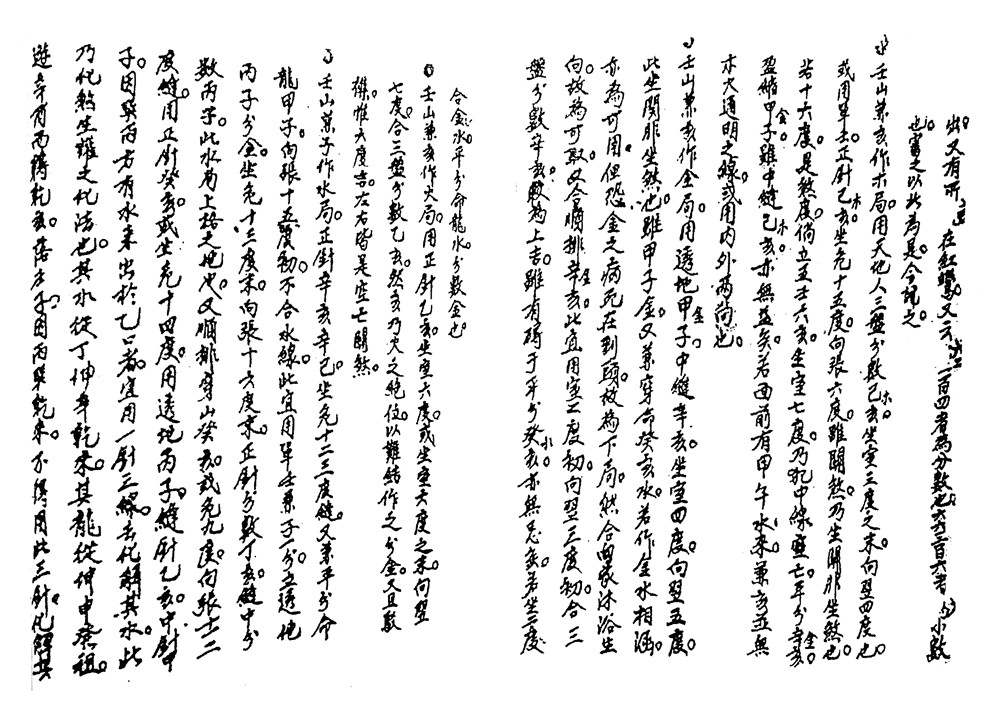 出又有所 在紅鸞又云 一百四者為分數也六六三百六者 小數
也審之以此為是今現之
壬山兼亥作木局用天地人三盤分數己亥木坐室三度之末向翌四度也
或用單壬正針己亥木坐危十五度向張六度雖關煞乃坐關非坐煞也
若十六度是煞度倘立五壬六亥坐室七度乃犯中線空亡平分辛亥金
盈縮甲子金雖中縫己亥木亦無益矣若面前有甲午水來兼亥並無
木火通明之線或用內外兩向也
壬山兼亥作金局用透地甲子金中縫辛亥坐室四度向翌五度
此坐關非坐煞也雖甲子金又兼穿命癸亥水若作金水相涵
亦為可用但恐金之病死在到頭故為下局然合曲家沐浴生
向故為可取又合順排辛亥金此宜用室二度初向翌三度初合三
盤分數辛亥為上吉雖有碍于平分癸亥水亦無忌矣若坐二度
合金水平分命龍水分數金也
壬山兼亥作火局用正針乙亥坐室六度或坐室六度之末向翌
七度合三盤分數乙亥然亥乃火之絕位以難結作之分金又且數
雜惟六度吉左右皆是空亡關煞
壬山兼子作水局正針辛亥辛巳坐危十二三度縫又兼平分命
龍甲子向張十五度初不合水線此宜用單壬兼子一分立透地
丙子分金坐危十三度末向張十六度末正針分數丁亥縫中分
數丙子此水局上格之地也又順排穿山癸亥或危九度向張十二
度縫用正針癸亥或坐危十四度用透地丙子縫針乙亥中針甲
子因癸丙方有水來出於乙口者宜用一針三線去化解其水此
乃化煞生旺之化法也其水從丁坤辛乾來其龍從坤申發祖
遊辛有西轉乾亥落壬子因丙巽乾來不得用此三針化解其